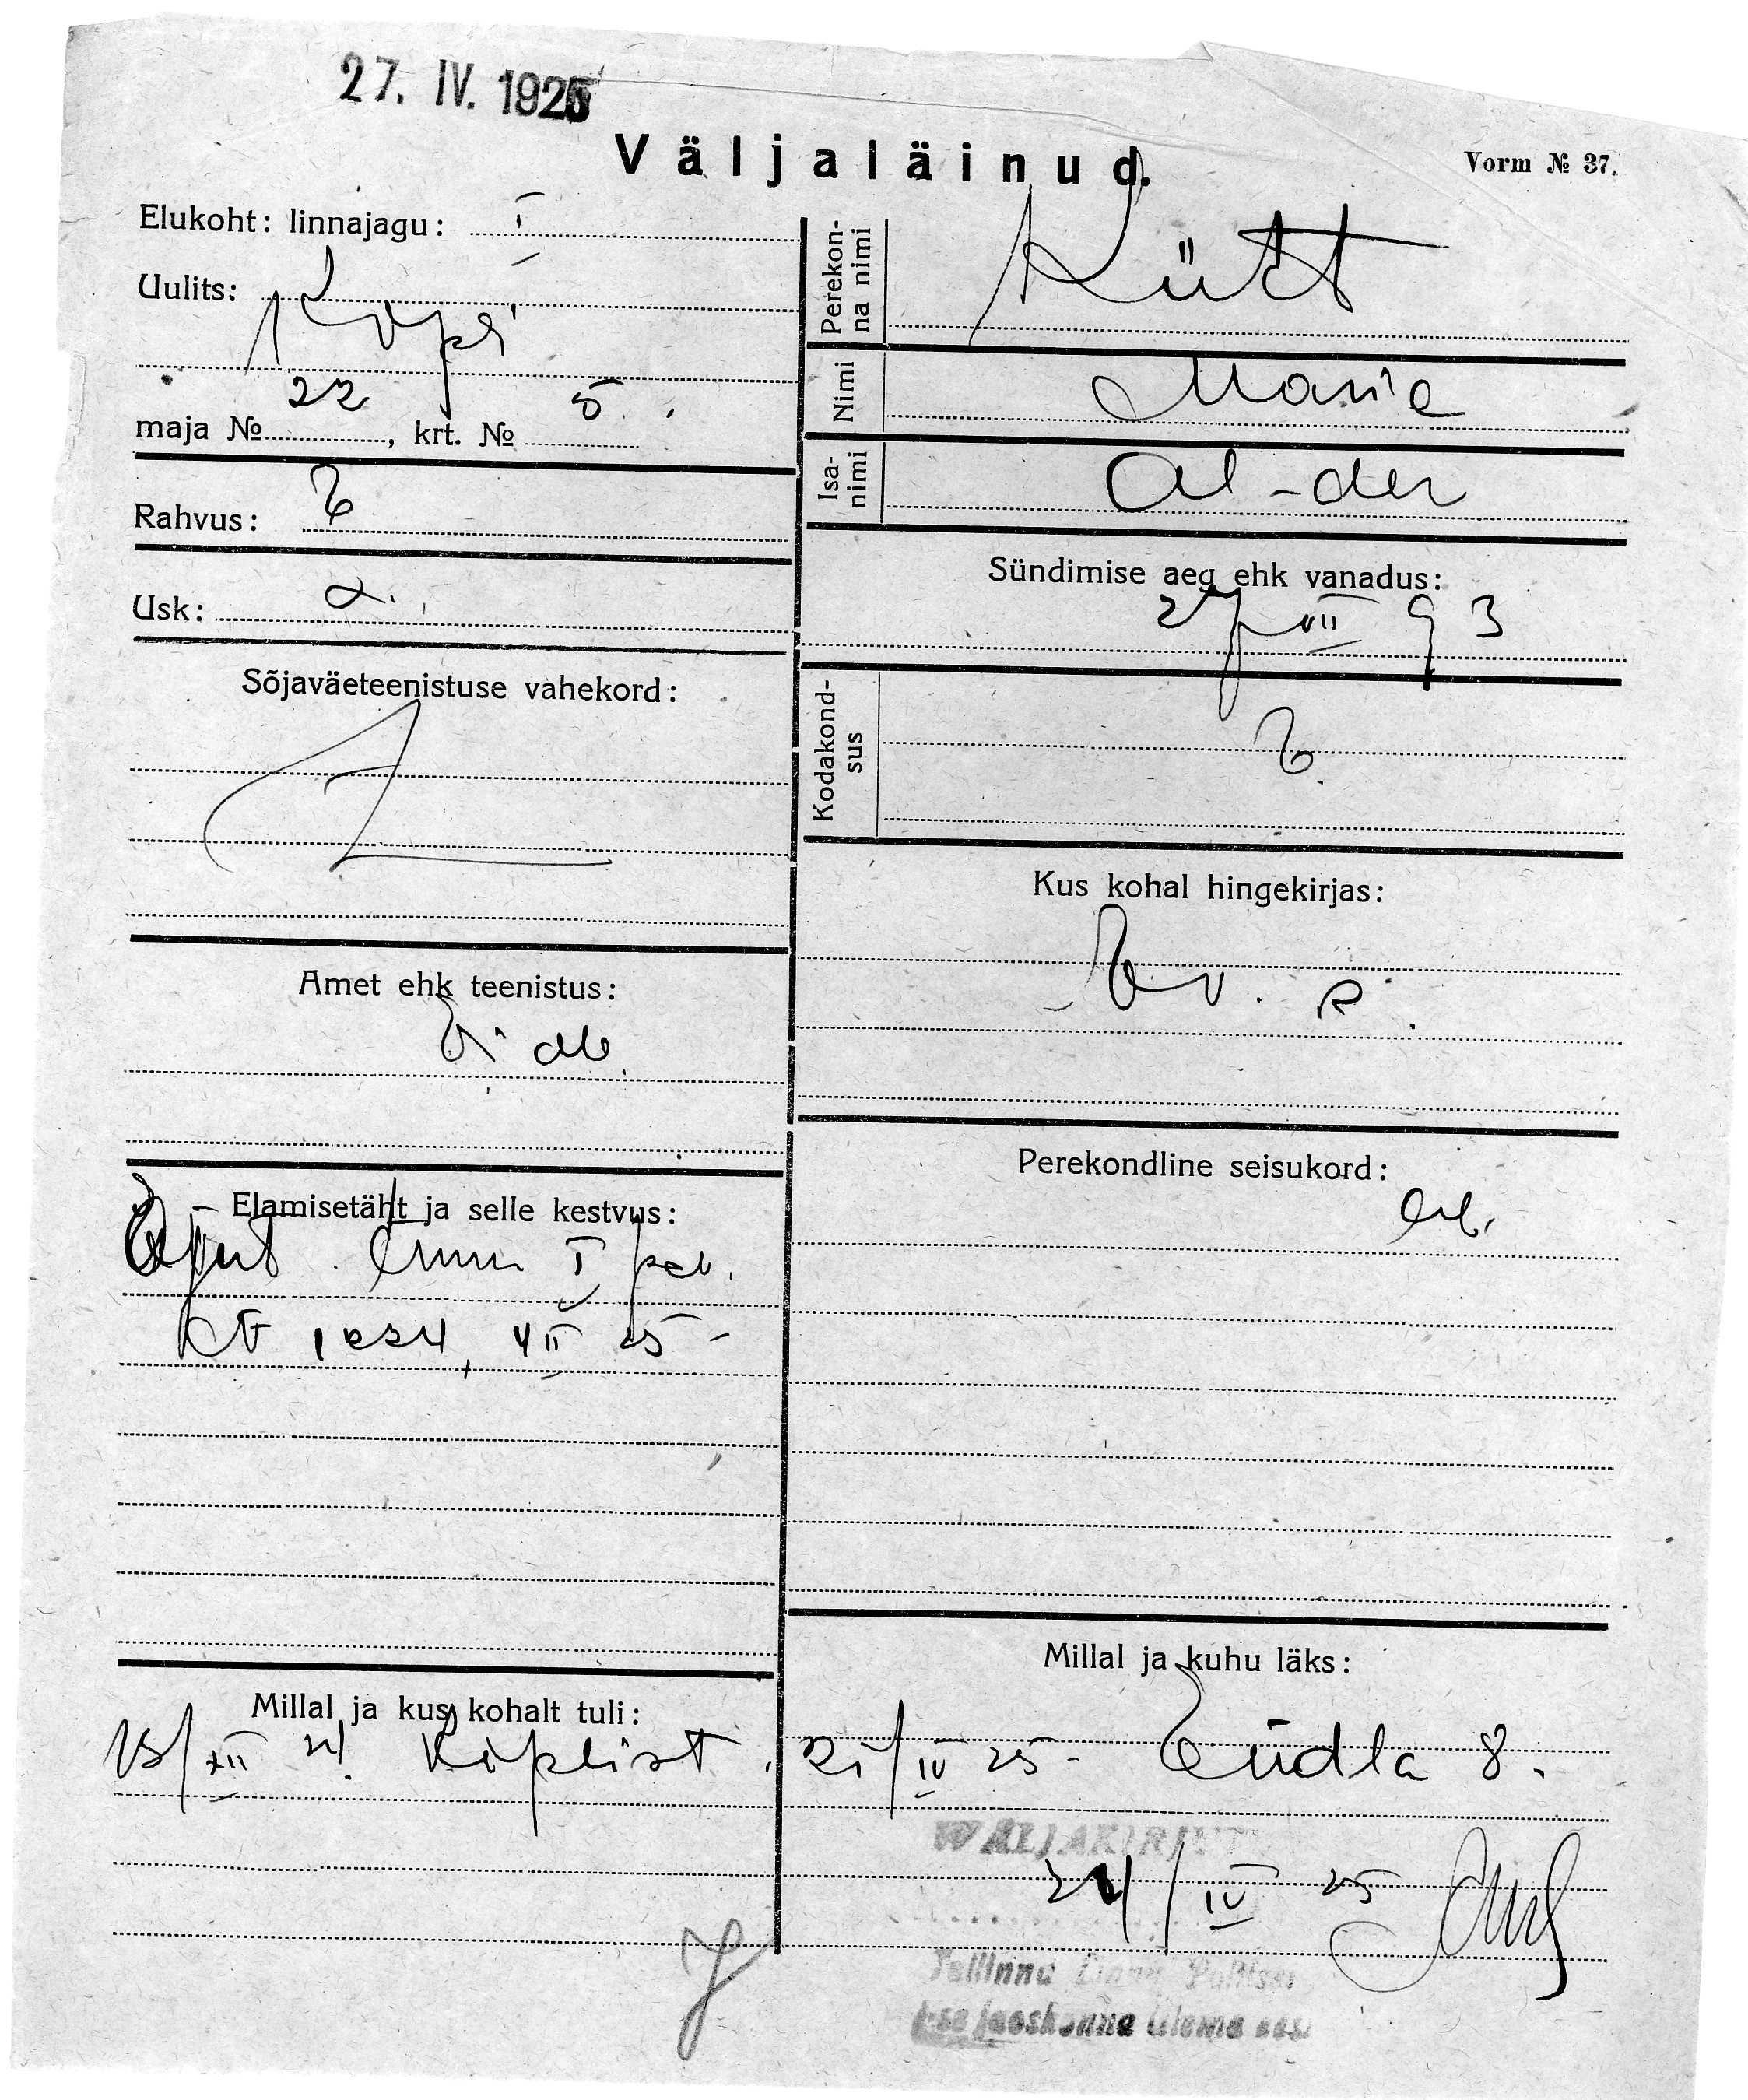 27. IV. 1925
Väljaläinud.
Vorm № 37.
Elukoht: linnajagu: I
Uulits: Kopli
maja № 22, krt. № 5.
Rahvus: E
Usk: L.
Sõjaväeteenistuse vahekord:
Amet ehk teenistus:
Elamisetäht ja selle kestvus:
I
4 II 25
Millal ja kus kohalt tuli:
15/XII 24. Koplist.
Perekonna nimi Kütt
Nimi Marie
Isanimi Al-der
Sündimise aeg ehk vanadus:
27/VII 93
Kodakondsus E.
Kus kohal hingekirjas:
Perekondline seisukord:
Millal ja kuhu läks:
21/IV 25 Endla 8.
WÄLJAKIRJUT
24/IV 25
Tallinna Linna Politsei
I-se jaoskonna ülema